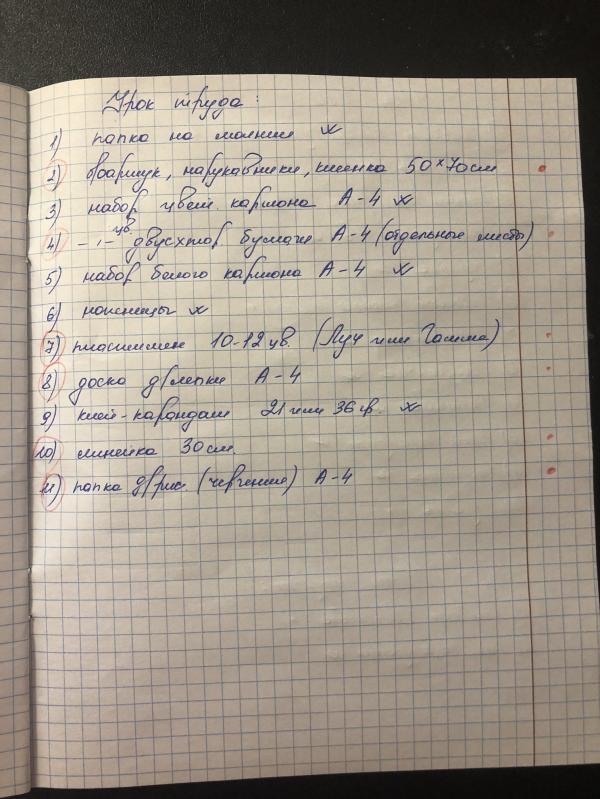 Урок труда:
1) папка на молнии x
2) фартук, нарукавники, клеенка 50×70см
3) набор цвет. картона А-4 x
4) –"– цв. двусктор бумаги А-4 (отдельные листы)
5) набор белого картона А-4 x
6) ножницы x
7) пластилин 10-12 цв. (Луч или Гамма)
8) доска д/лепки А-4
9) клей-карандаш 21 или 36 гр. x
10) линейка 30 см.
11) папка д/рис. (черчения) А-4